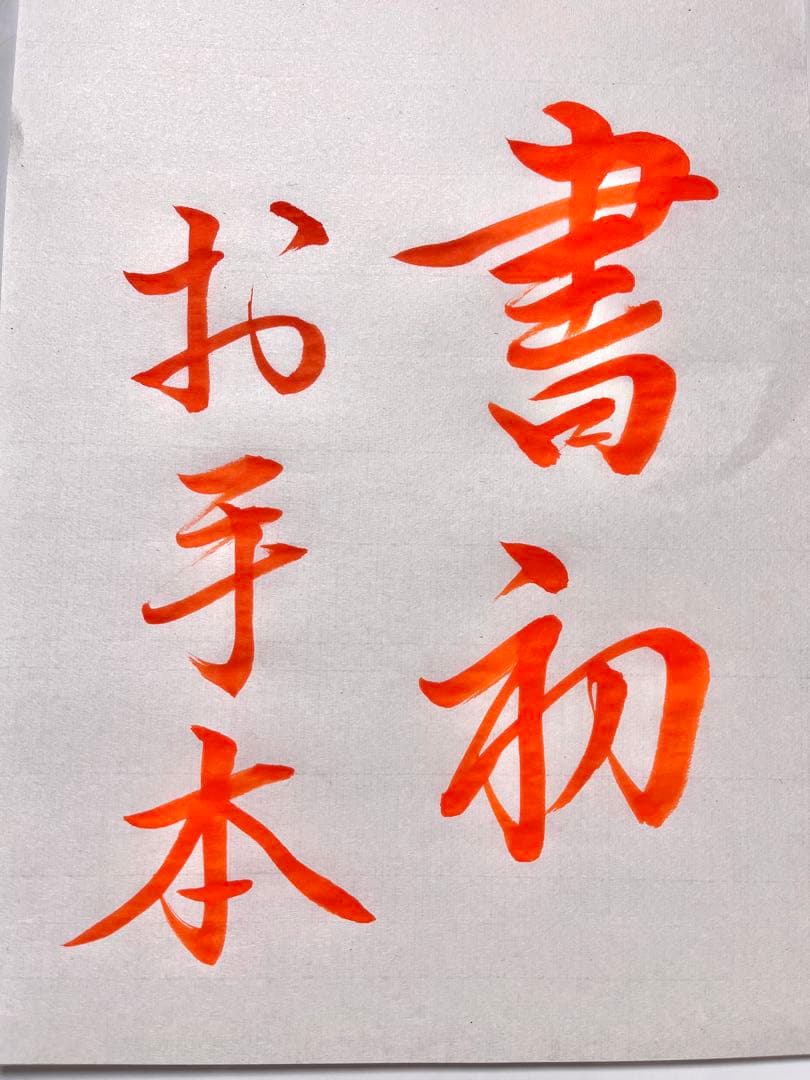 書初
お手本